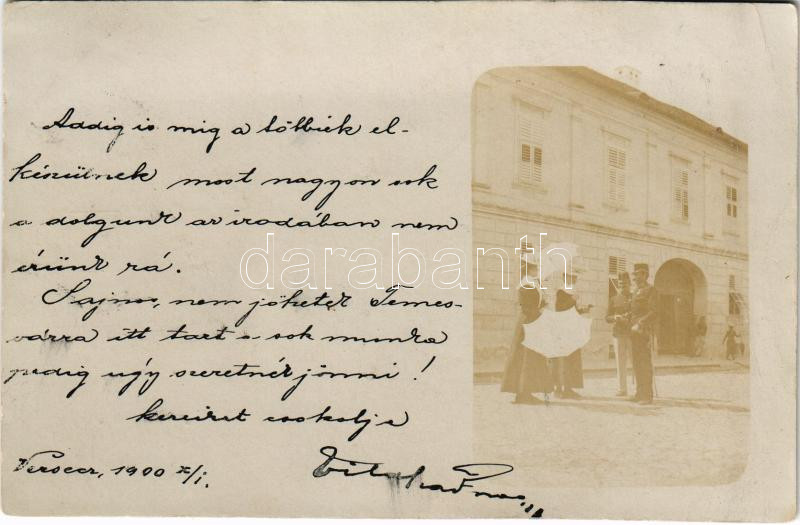 Addig is mig a többiek el-
készülnek most nagyon sok
a dolgunk az irodában nem
érünk rá.
Sajnos, nem jöhetek Temes-
várra itt tart a sok munka
pedig úgy szeretnék jönni!
kezeiket csókolja
Versecz, 1900 X/1.
darabanth